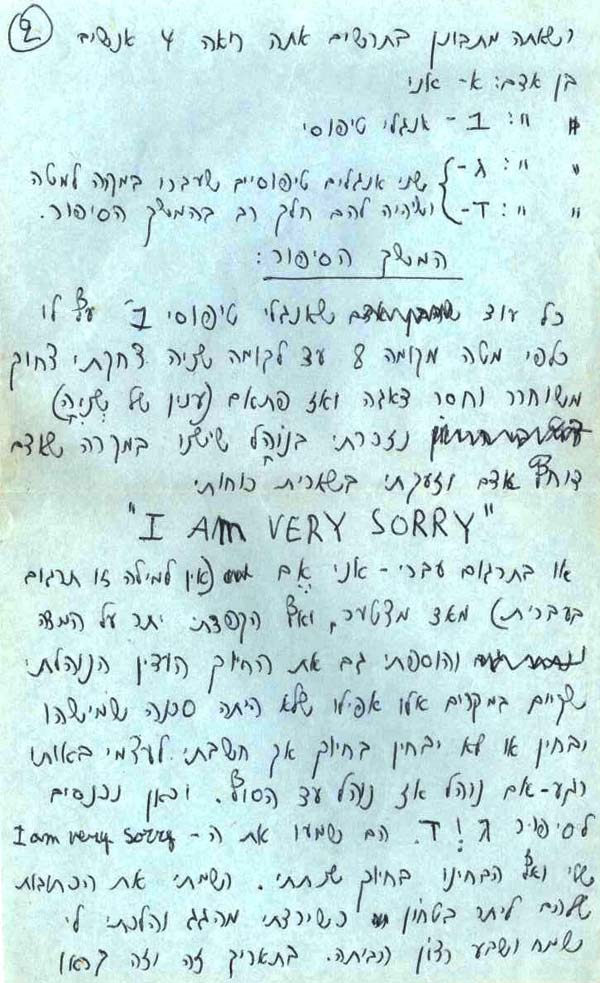 ②
כשאתה מתבונן בתרשים אתה רואה 4 אנשים
בן אדם: א- אני
" ": ב- אנגלי טיפוסי
" ": ג- שני אנגלים טיפוסיים שעברו במקרה למטה
" ": ד- ושיהיה להם חלק רב בהמשך הסיפור.
המשך הסיפור:
כל עוד שאנגלי טיפוסי ב' עף לו
כלפי מטה מקומה 8 עד לקומה שניה צחקתי צחוק
משוחרר וחסר דאגה ואז פתאם (ענין של שניה)
נזכרתי בנוהל שישנו במקרה שאדם
דוחף אדם וזעקתי בשארית כוחותי
"I AM VERY SORRY"
או בתרגום עברי - אני אם (אין למילה זו תרגום
בעברית) מאד מצטער, ואף הקפדתי יתר על המדה
והוספתי גם את החיוך העדין הנוהלתי
שקיים במקרים אלו אפילו שלא היתה סכנה שמישהו
יבחין או לא יבחין בחיוך אך חשבתי לעצמי באותו
רגע- אם נוהל אז נוהל עד הסוף. וכאן נכנסים
לסיפור ג' ו ד'. הם שמעו את ה- I am very sorry
שלי ואף הבחינו בחיוך שנתתי. רשמתי את הכתובות
שלהם ליתר בטחון כשירדתי מהגג והלכתי לי
שמח ושבע רצון הביתה. בתאריך זה וזה קראו